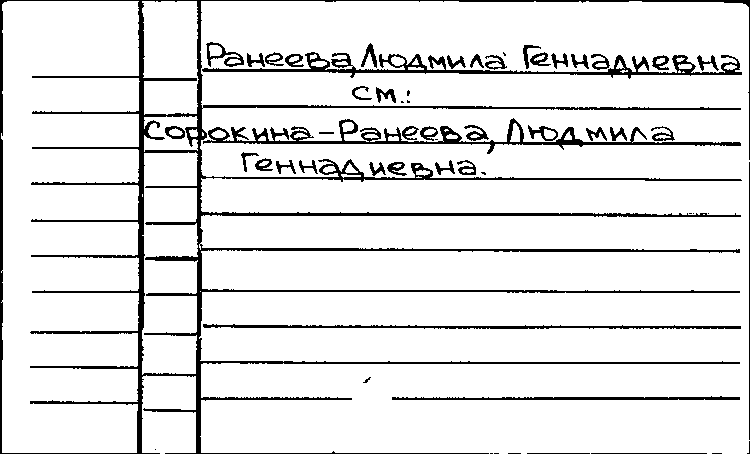 Ранеева, Людмила Геннадиевна
см.:
Сорокина-Ранеева, Людмила
Геннадиевна.